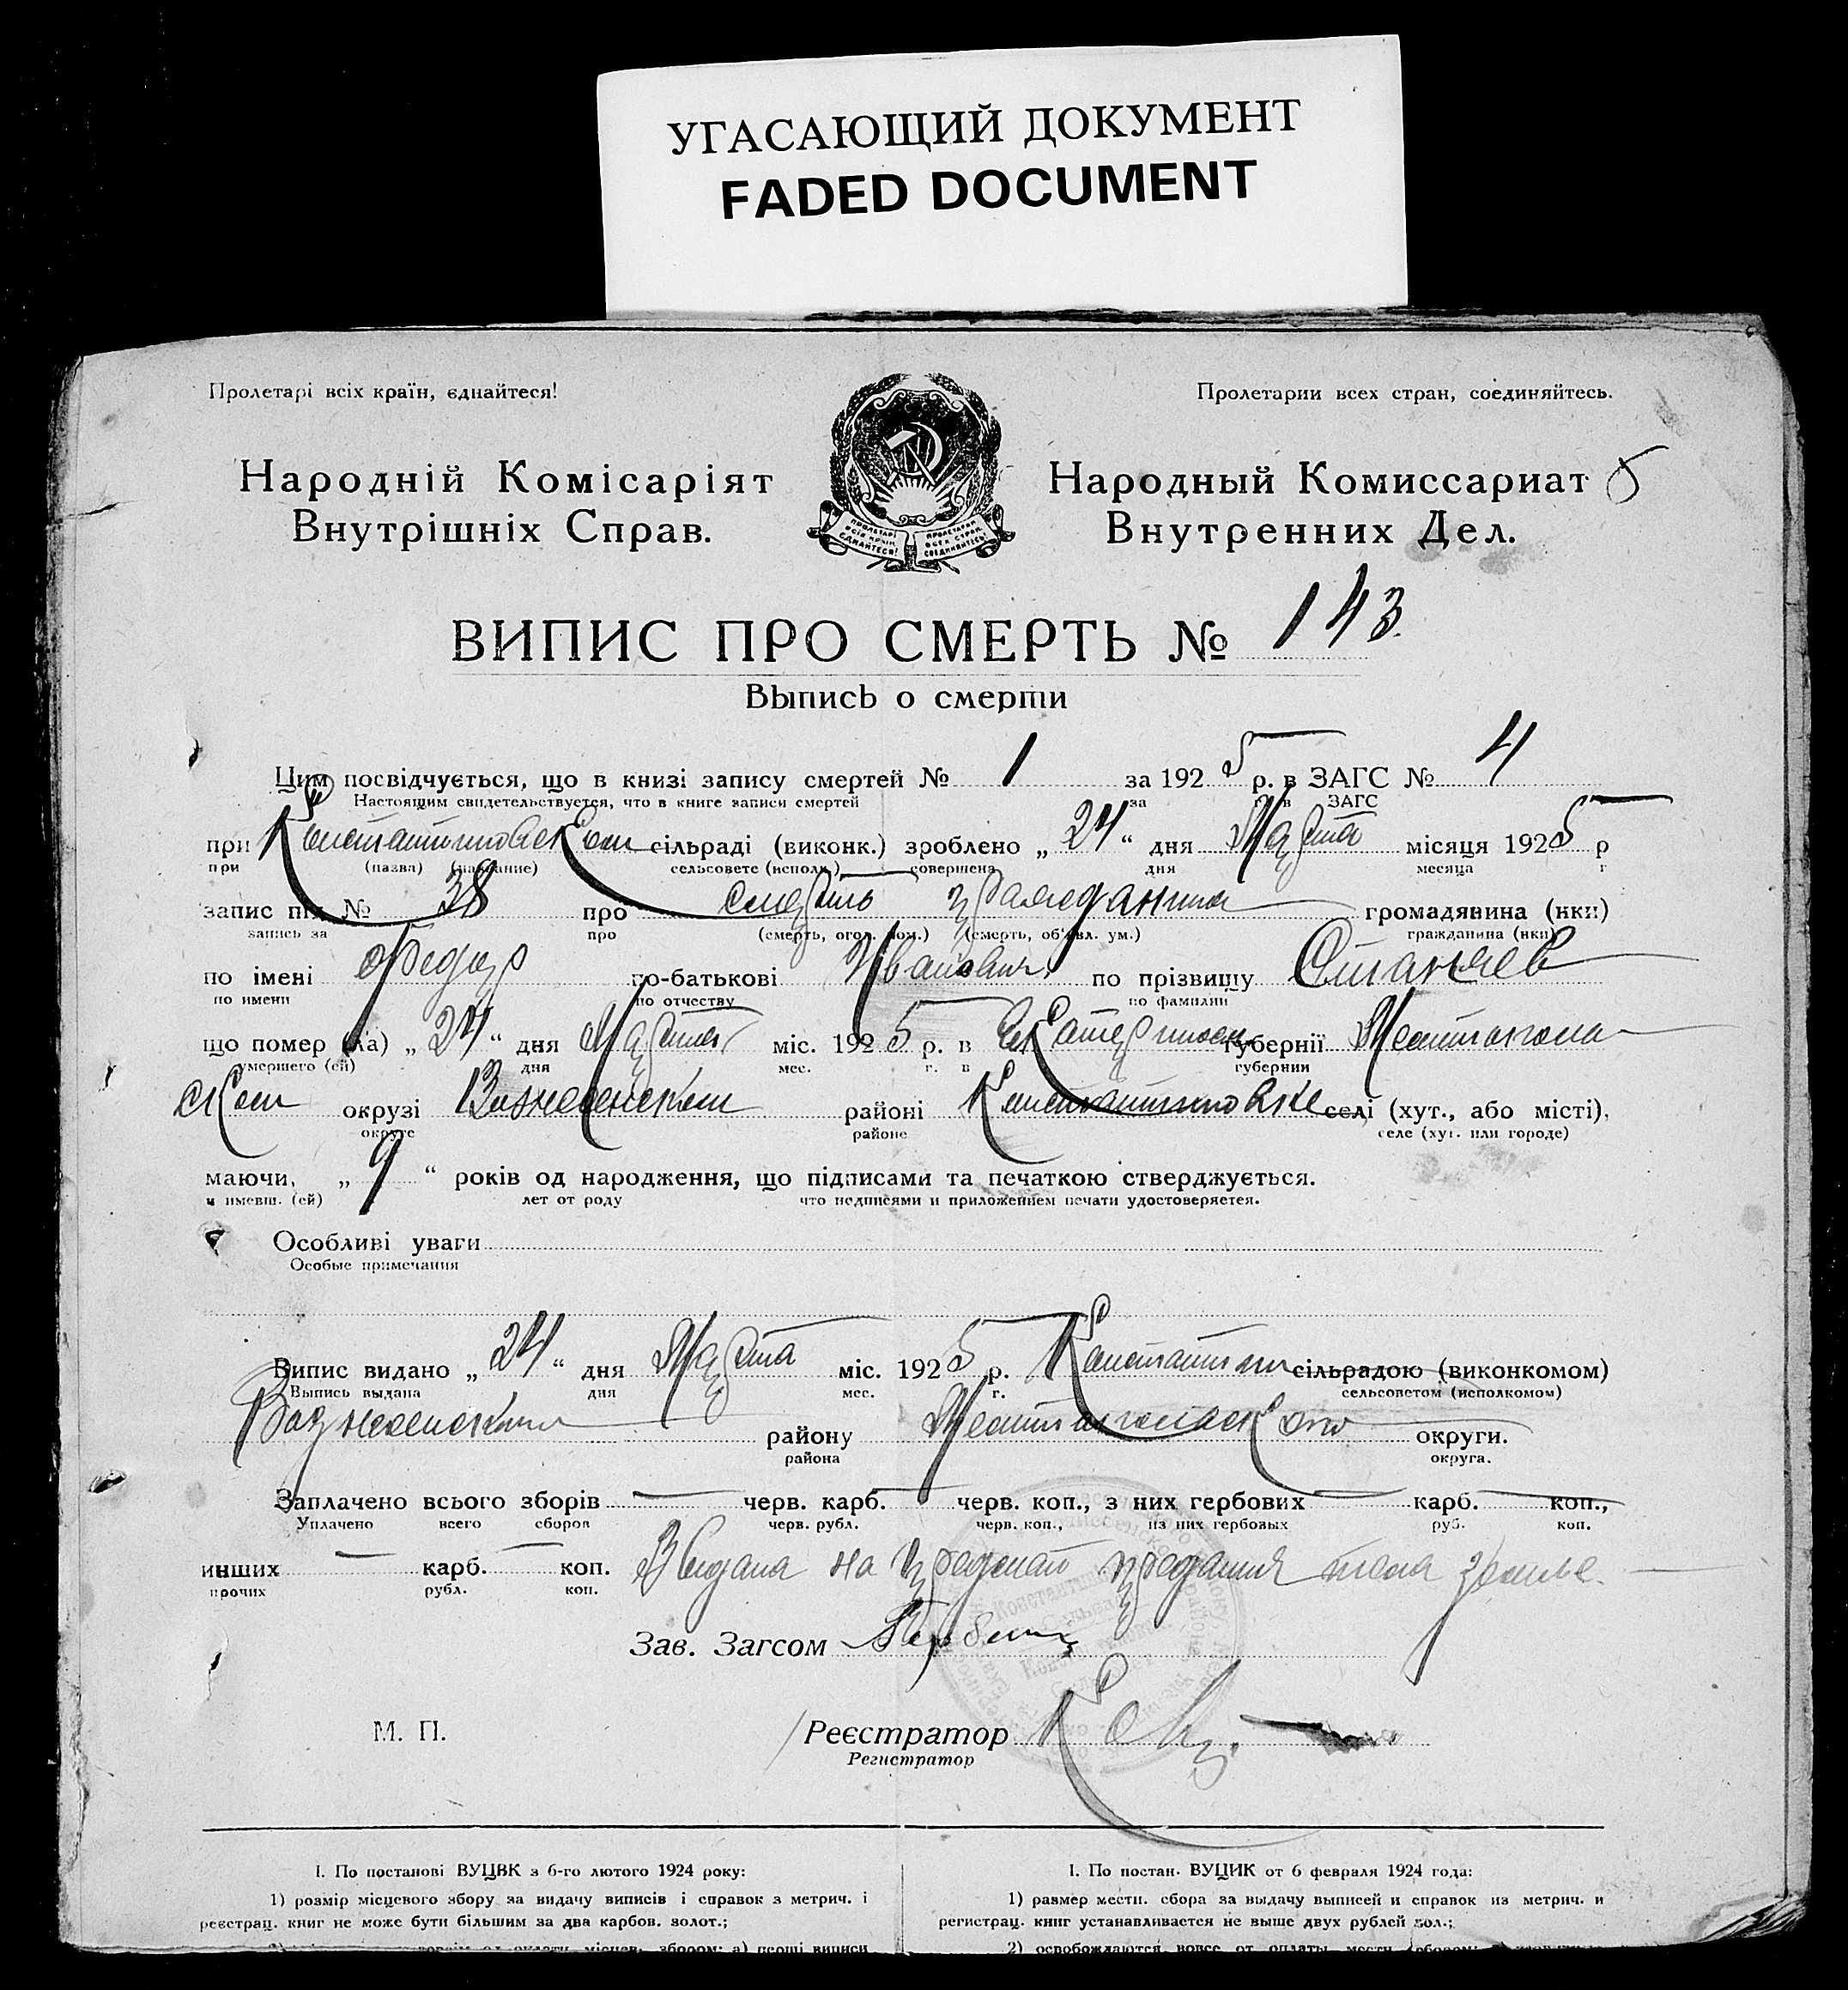 УГАСАЮЩИЙ ДОКУМЕНТ
FADED DOCUMENT
Пролетарі всіх країн, єднайтеся!
Пролетарии всех стран, соединяйтесь.
Народній Комісаріят
Внутрішніх Справ.
ПРОЛЕТАРІ ВСІХ КРАЇН ЄДНАЙТЕСЯ!
ПРОЛЕТАРИИ ВСЕХ СТРАН СОЕДИНЯЙТЕСЬ!
Народный Комиссариат 5
Внутренних Дел.
ВИПИС ПРО СМЕРТЬ № 143
Выпись о смерти
Цим посвідчується, що в книзі запису смертей № 1 за 1925 р. в ЗАГС № 4
Настоящим свидетельствуется, что в книге записи смертей за г. в ЗАГС
при Константиновском сільраді (виконк.) зроблено „24“ дня Марта місяця 1925 р
при (назва) (название) сельсовете (исполк.) совершена дня месяца г
запис під № 38 про смерть гражданина громадянина (нки)
запись за про (смерть, огол. пом.) (смерть, об'явл. ум.) гражданина (нки)
по імені Федор по-батькові Иванович по прізвищу
по имени по отчеству по фамилии
що помер (ла) „24“ дня Марта міс. 1925 р. в Екатериносл губернії Мелитополь
умершего (ей) дня мес. г. в губернии
ском окрузі Вознесенском районі Константиновке селі (хут., або місті),
округе районе селе (хут. или городе)
маючи, „9“ років од народження, що підписами та печаткою стверджується.
и имевш. (ей) лет от роду что подписями и приложением печати удостоверяется.
Особливі уваги
Особые примечания
Випис видано „24“ дня Марта міс. 1925 р. Константин сільрадою (виконкомом)
Выпись выдана дня мес. г. сельсоветом (исполкомом)
Вознесенским району Мелитопольского округи.
района округа.
Заплачено всього зборів — черв. карб. — черв. коп., з них гербових — карб. — коп.,
Уплачено всего сборов черв. рубл. черв. коп., из них гербовых руб. коп.
инших — карб. — коп. Выдана на предмет предания тела земле.
прочих рубл. коп.
Зав. Загсом
М. П.
Реєстратор
Регистратор
I. По постанові ВУЦВК з 6-го лютого 1924 року:
1) розмір місцевого збору за видачу виписів і справок з метрич. і
реєстрац. книг не може бути більшим за два карбов. золот.;
I. По постан. ВУЦИК от 6 февраля 1924 года:
1) размер местн. сбора за выдачу выписей и справок из метрич. и
регистрац. книг устанавливается не выше двух рублей зол.;
2) освобождаются вовсе от оплаты местн. сбором: